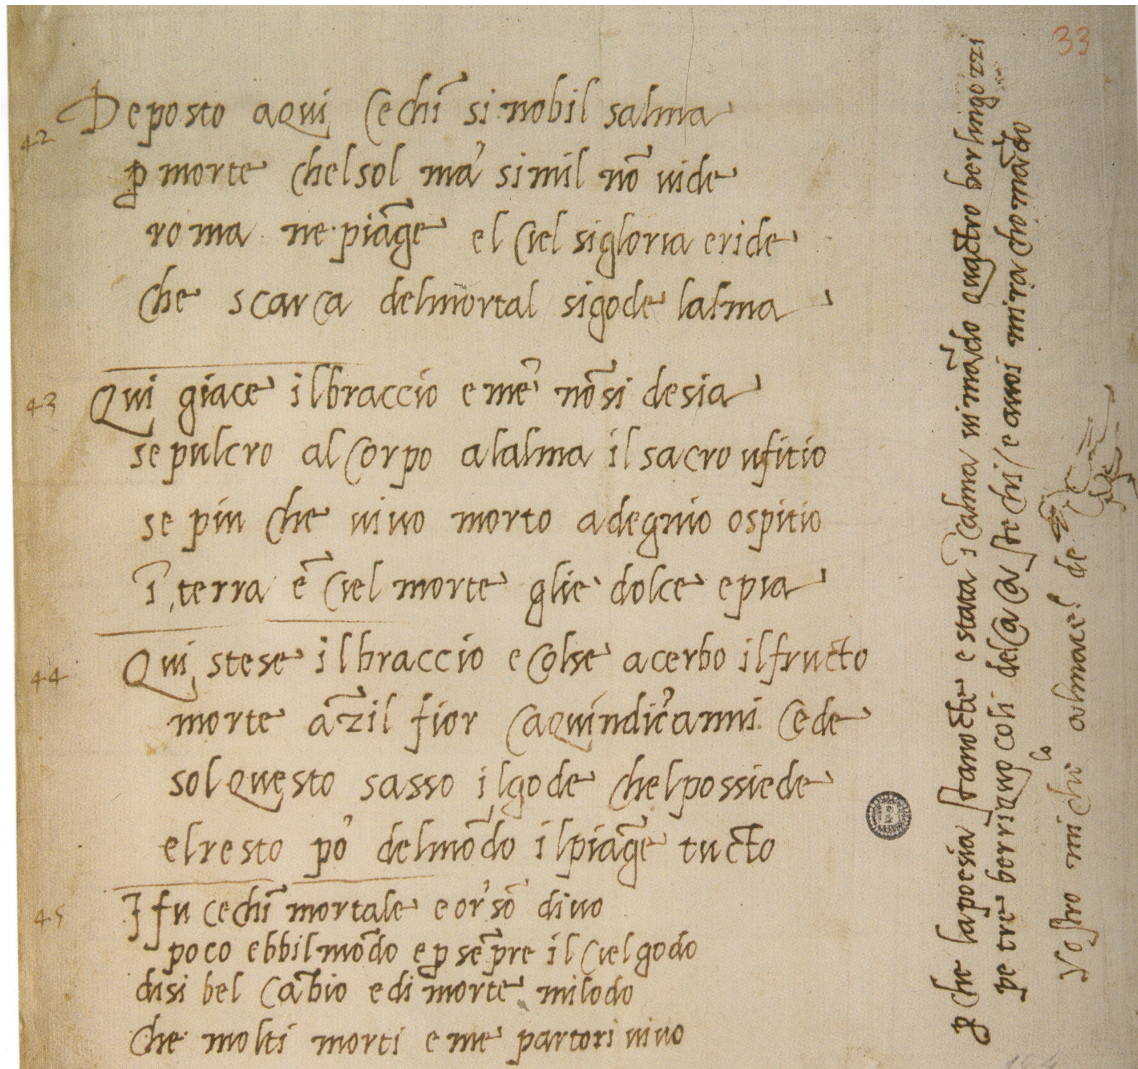 33
42
Deposto aqui cechī si nobil salma
p̱ morte chelsol ma' simil nō uide
roma ne·piāge el ciel sigloria eride
che scarca delmortal sigode lalma
43
Qui giace ilbraccio e me' nōsi desia
sepulcro al corpo alalma il sacro ufitio
se piu che uiuo morto a degnio ospitio
ī terra e' ciel morte glie dolce epia
44
Qui stese ilbraccio e colse acerbo ilfructo
morte āzil fior caquindic'anni cede
sol questo sasso ilgode chelpossiede
elresto po' delmōdo ilpiāge tucto
45
I fu cechī mortale e or'sō diuo
poco ebbilmōdo e p̱ sēpre il cielgodo
disi bel cābio e di morte milodo
che molti morti e me partori uiuo
p̱che lapoesia stanocte e stata ī calma ui mādo quactro berlingozzi
pe tre berriquocoli del
uostro michelo